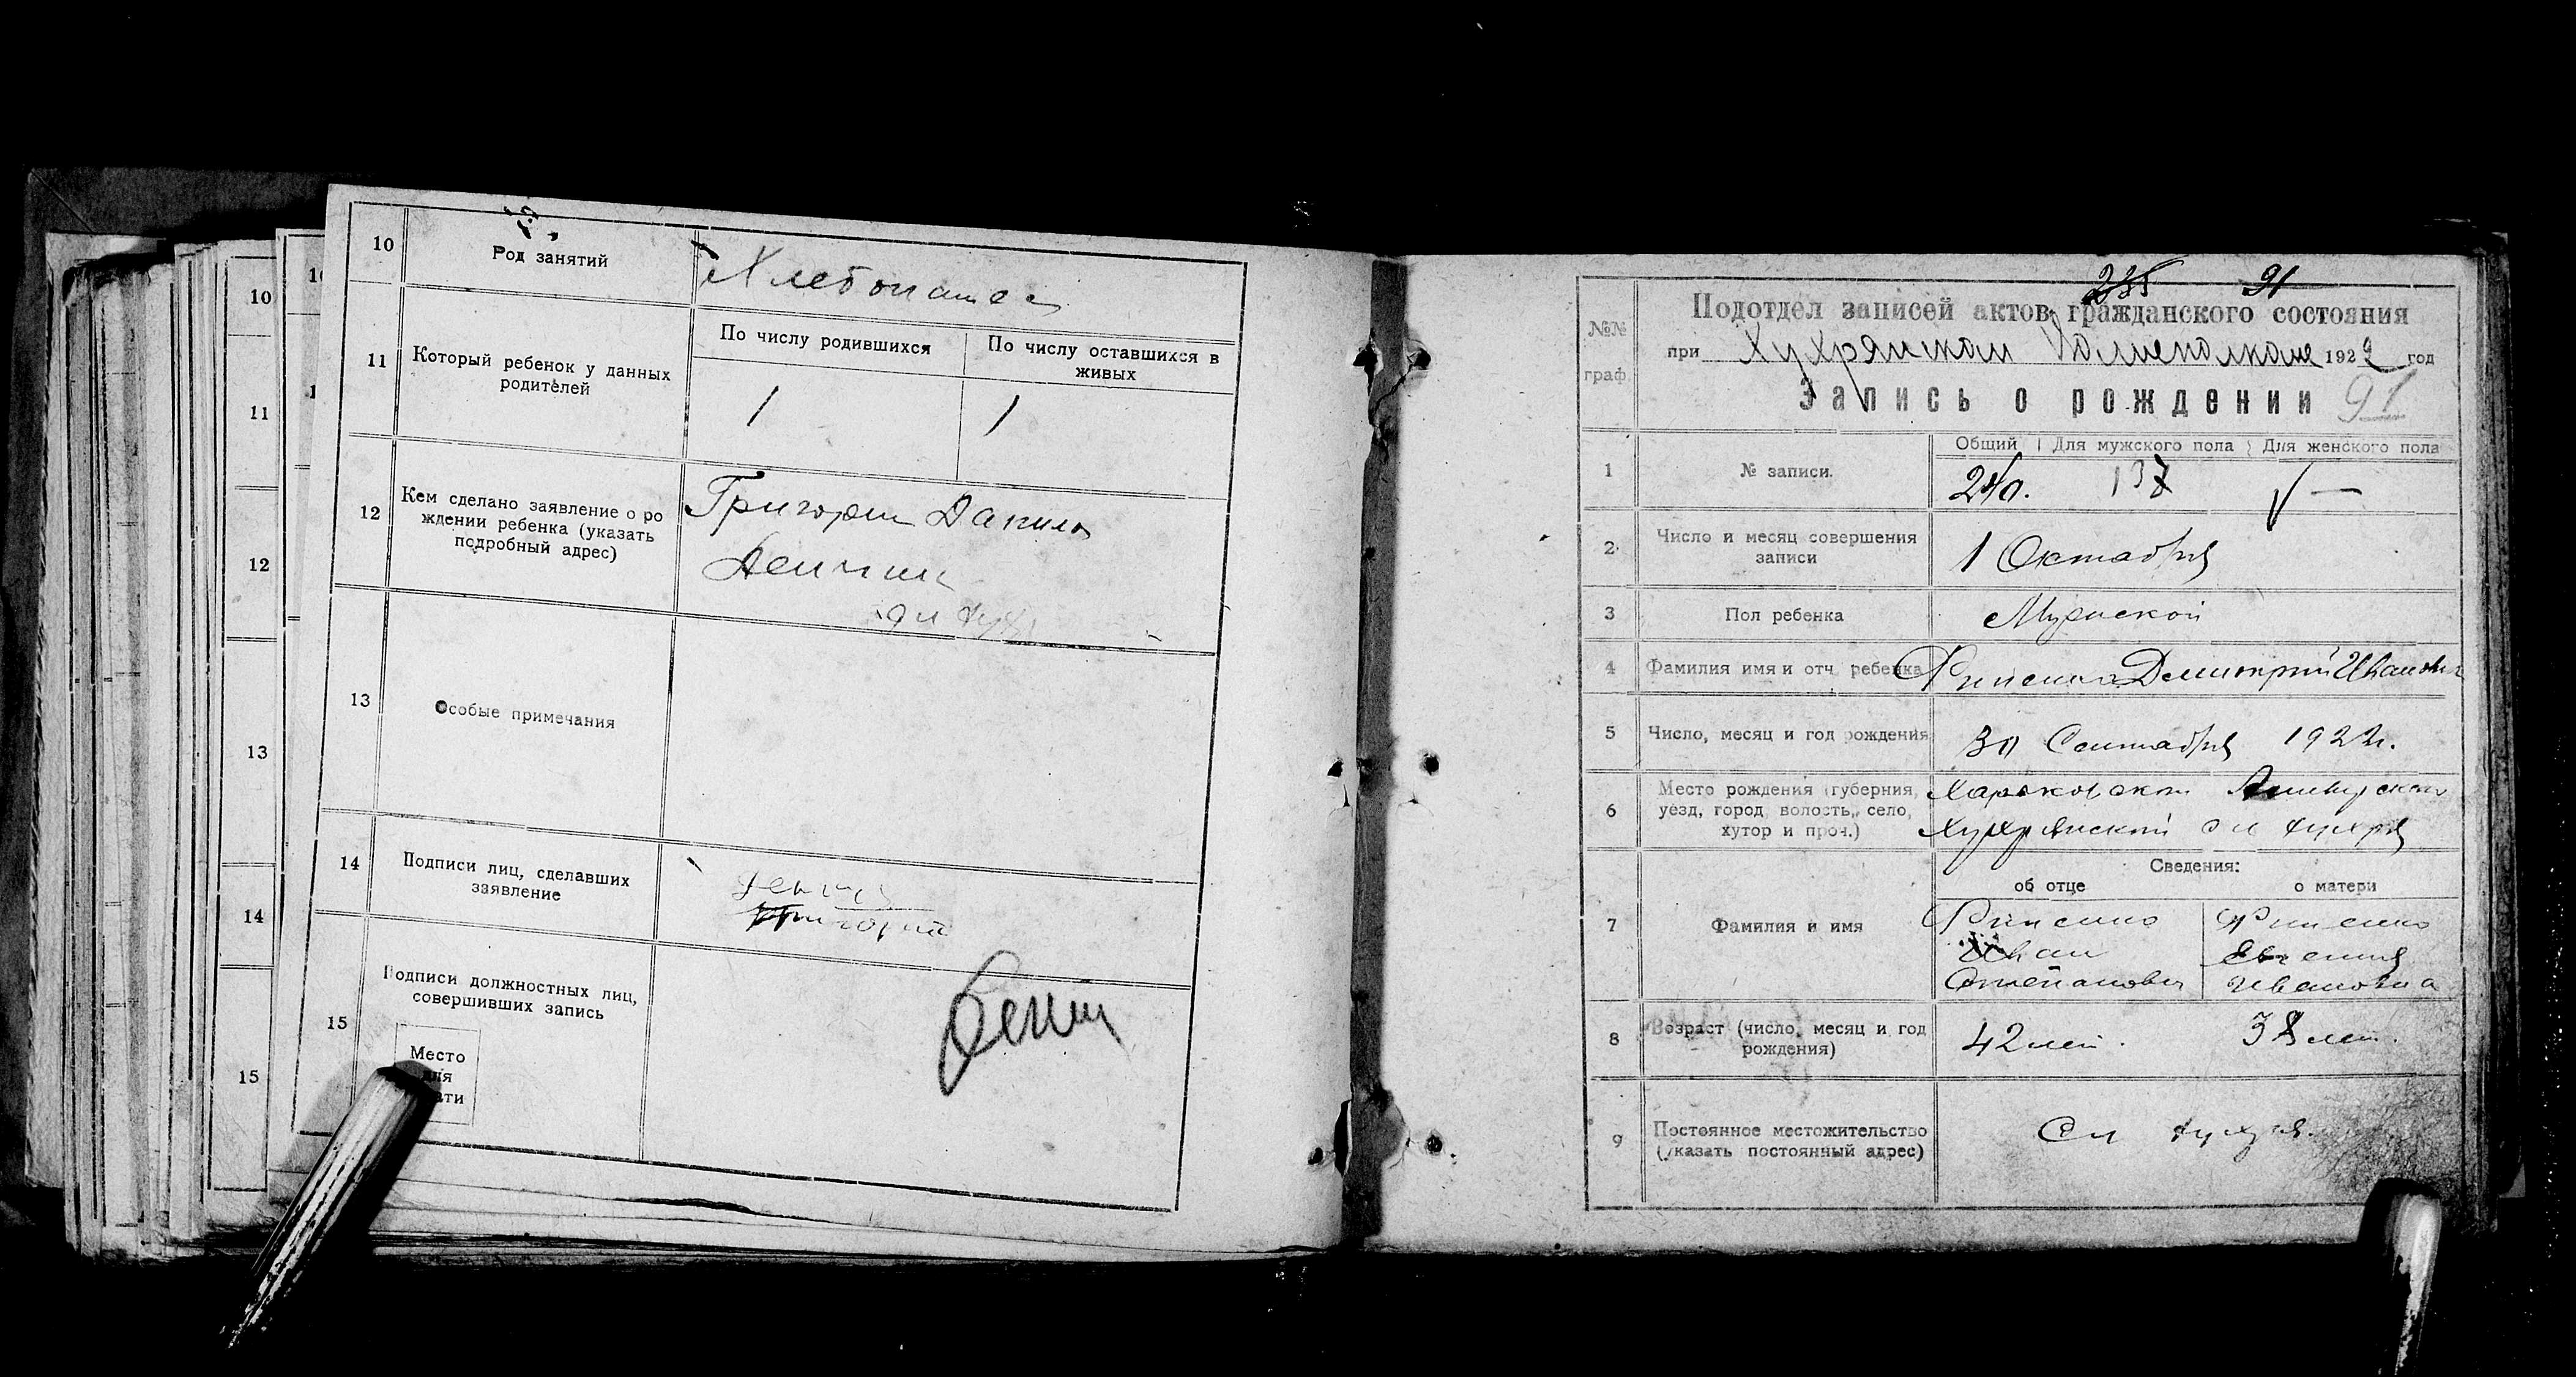 10
Род занятий
Хлебопашес
11
Который ребенок у данных
родителей
По числу родившихся
По числу оставшихся в
живых
1
1
12
Кем сделано заявление о ро
ждении ребенка (указать
подробный адрес)
Григорий Данил
13
Особые примечания
14
Подписи лиц, сделавших
заявление
Григорий
15
Подписи должностных лиц,
совершивших запись
Место
для
ати
10
11
12
13
14
15
91
№№
граф
Подотдел записей актов гражданского состояния
при Хухрянском Волисполкоме 1922 год
Запись о рождении 91
1
№ записи.
Общий
Для мужского пола
Для женского пола
240. 137 —
2
Число и месяц совершения
записи
1 Октября
3
Пол ребенка
Мужской
4
Фамилия имя и отч. ребенка
Дмитрий Иванович
5
Число, месяц и год рождения
30 Сентября 1922г.
6
Место рождения (губерния,
уезд, город, волость, село,
хутор и проч.)
Харьковской Ахтырской
Хухрянской сл Хухря
7
Фамилия и имя
Сведения:
об отце
о матери
Иван
Степанович
Евгения
Ивановна
8
Возраст (число, месяц и год
рождения)
42 лет.
38 лет.
9
Постоянное местожительство
(указать постоянный адрес)
Сл Хухря.